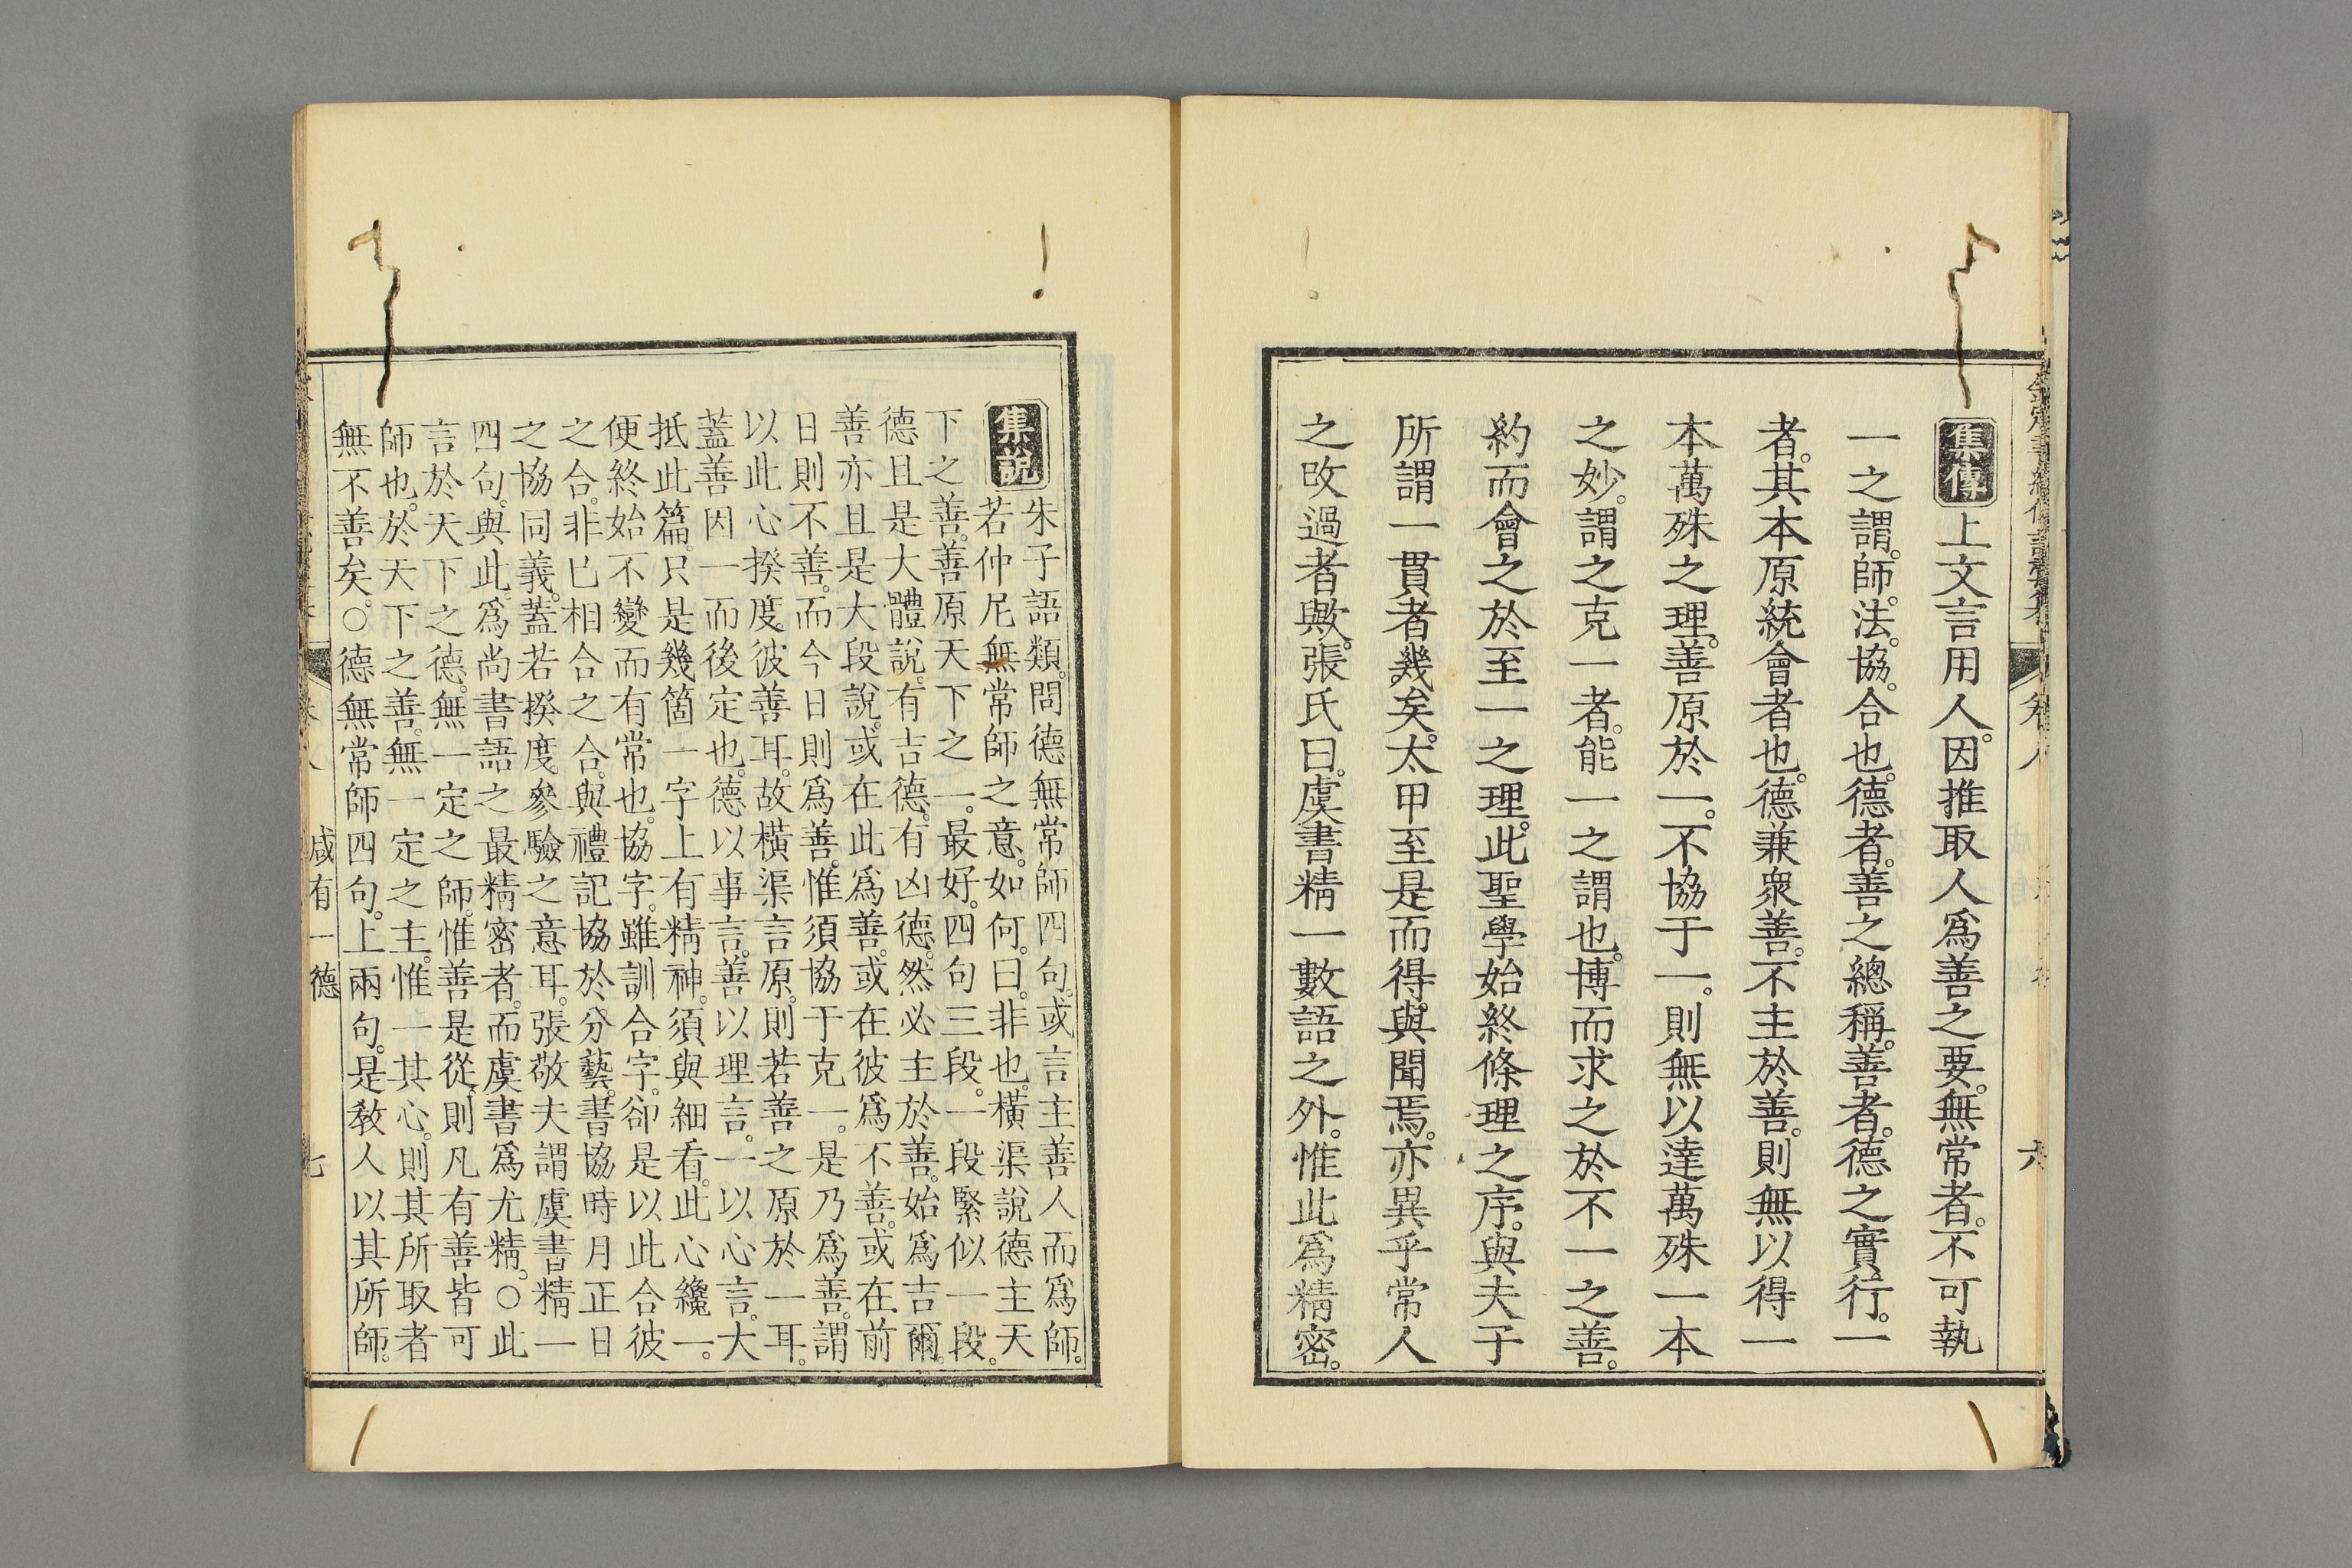 集傳上文言用人。因推取人爲善之要。無常者。不可執
一之謂。師。法。協。合也。德者。善之總稱。善者。德之實行。一
者。其本原統會者也。德兼衆善。不主於善。則無以得一
本萬殊之理。善原於一。不協于一。則無以達萬殊一本
之妙。謂之克一者。能一之謂也。博而求之於不一之善。
約而會之於至一之理。此聖學始終條理之序。與夫子
所謂一貫者幾矣。太甲至是而得與聞焉。亦異乎常人
之改過者歟。張氏曰。虞書精一數語之外。惟此爲精密。
集說朱子語類。問德無常師四句。或言主善人而爲師。
若仲尼無常師之意。如何。曰。非也。橫渠說德主天
下之善。善原天下之一。最好。四句三段。一段緊似一段。
德且是大體說。有吉德。有凶德。然必主於善。始爲吉爾。
善亦且是大段說。或在此爲善。或在彼爲不善。或在前
日則不善。而今日則爲善。惟須協于克一。是乃爲善。謂
以此心揆度。彼善耳。故橫渠言原。則若善之原於一耳。
蓋善因一而後定也。德以事言。善以理言。一以心言。大
抵此篇。只是幾箇一字上有精神。須與細看。此心纔一。
便終始不變而有常也。協字。雖訓合字。卻是以此合彼
之合。非已相合之合。與禮記協於分藝。書協時月正日
之協同義。蓋若揆度參驗之意耳。張敬夫謂虞書精一
四句。與此。爲尚書語之最精密者。而虞書爲尤精。○此
言於天下之德。無一定之師。惟善是從。則凡有善皆可
師也。於天下之善。無一定之主。惟一其心。則其所取者
無不善矣。○德無常師四句。上兩句。是教人以其所師。
咸有一德